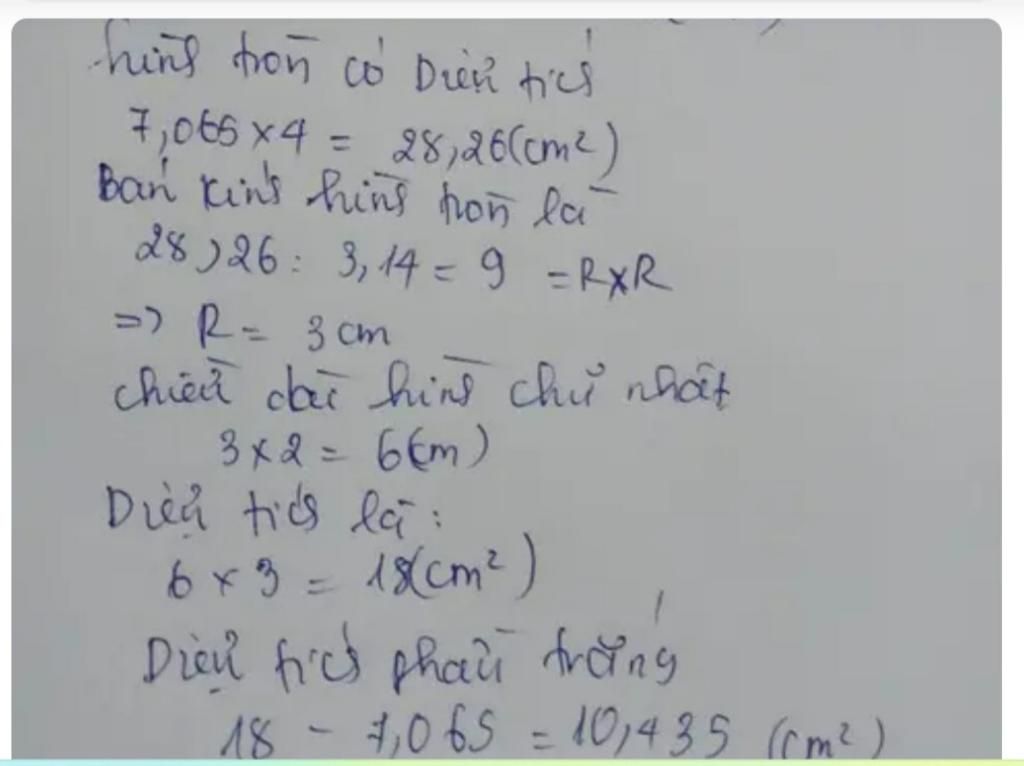 hình tròn có Diện tích
7,065 × 4 = 28,26(cm²)
Bán kính hình tròn là
28,26 : 3,14 = 9 = R×R
=> R = 3 cm
chiều dài hình chữ nhật
3 × 2 = 6(cm)
Diện tích là :
6 × 3 = 18(cm²)
Diện tích phần trắng
18 - 7,065 = 10,435 (cm²)